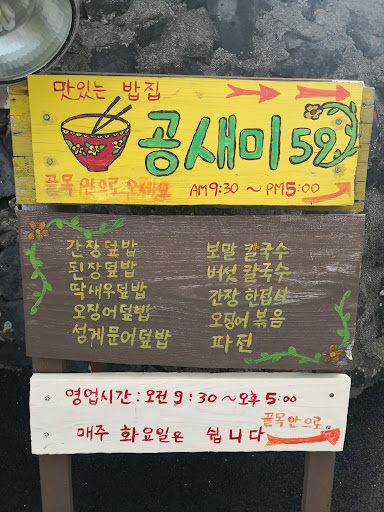 맛있는 밥집
공새미 59
골목 안으로 오세요 AM 9:30 ~ PM 5:00
간장덮밥 보말 칼국수
된장덮밥 버섯 칼국수
딱새우덮밥 간장 한접시
오징어덮밥 오징어볶음
성게문어덮밥 파전
영업시간 : 오전 9:30 ~ 오후 5:00
매주 화요일은 쉽니다 골목안으로